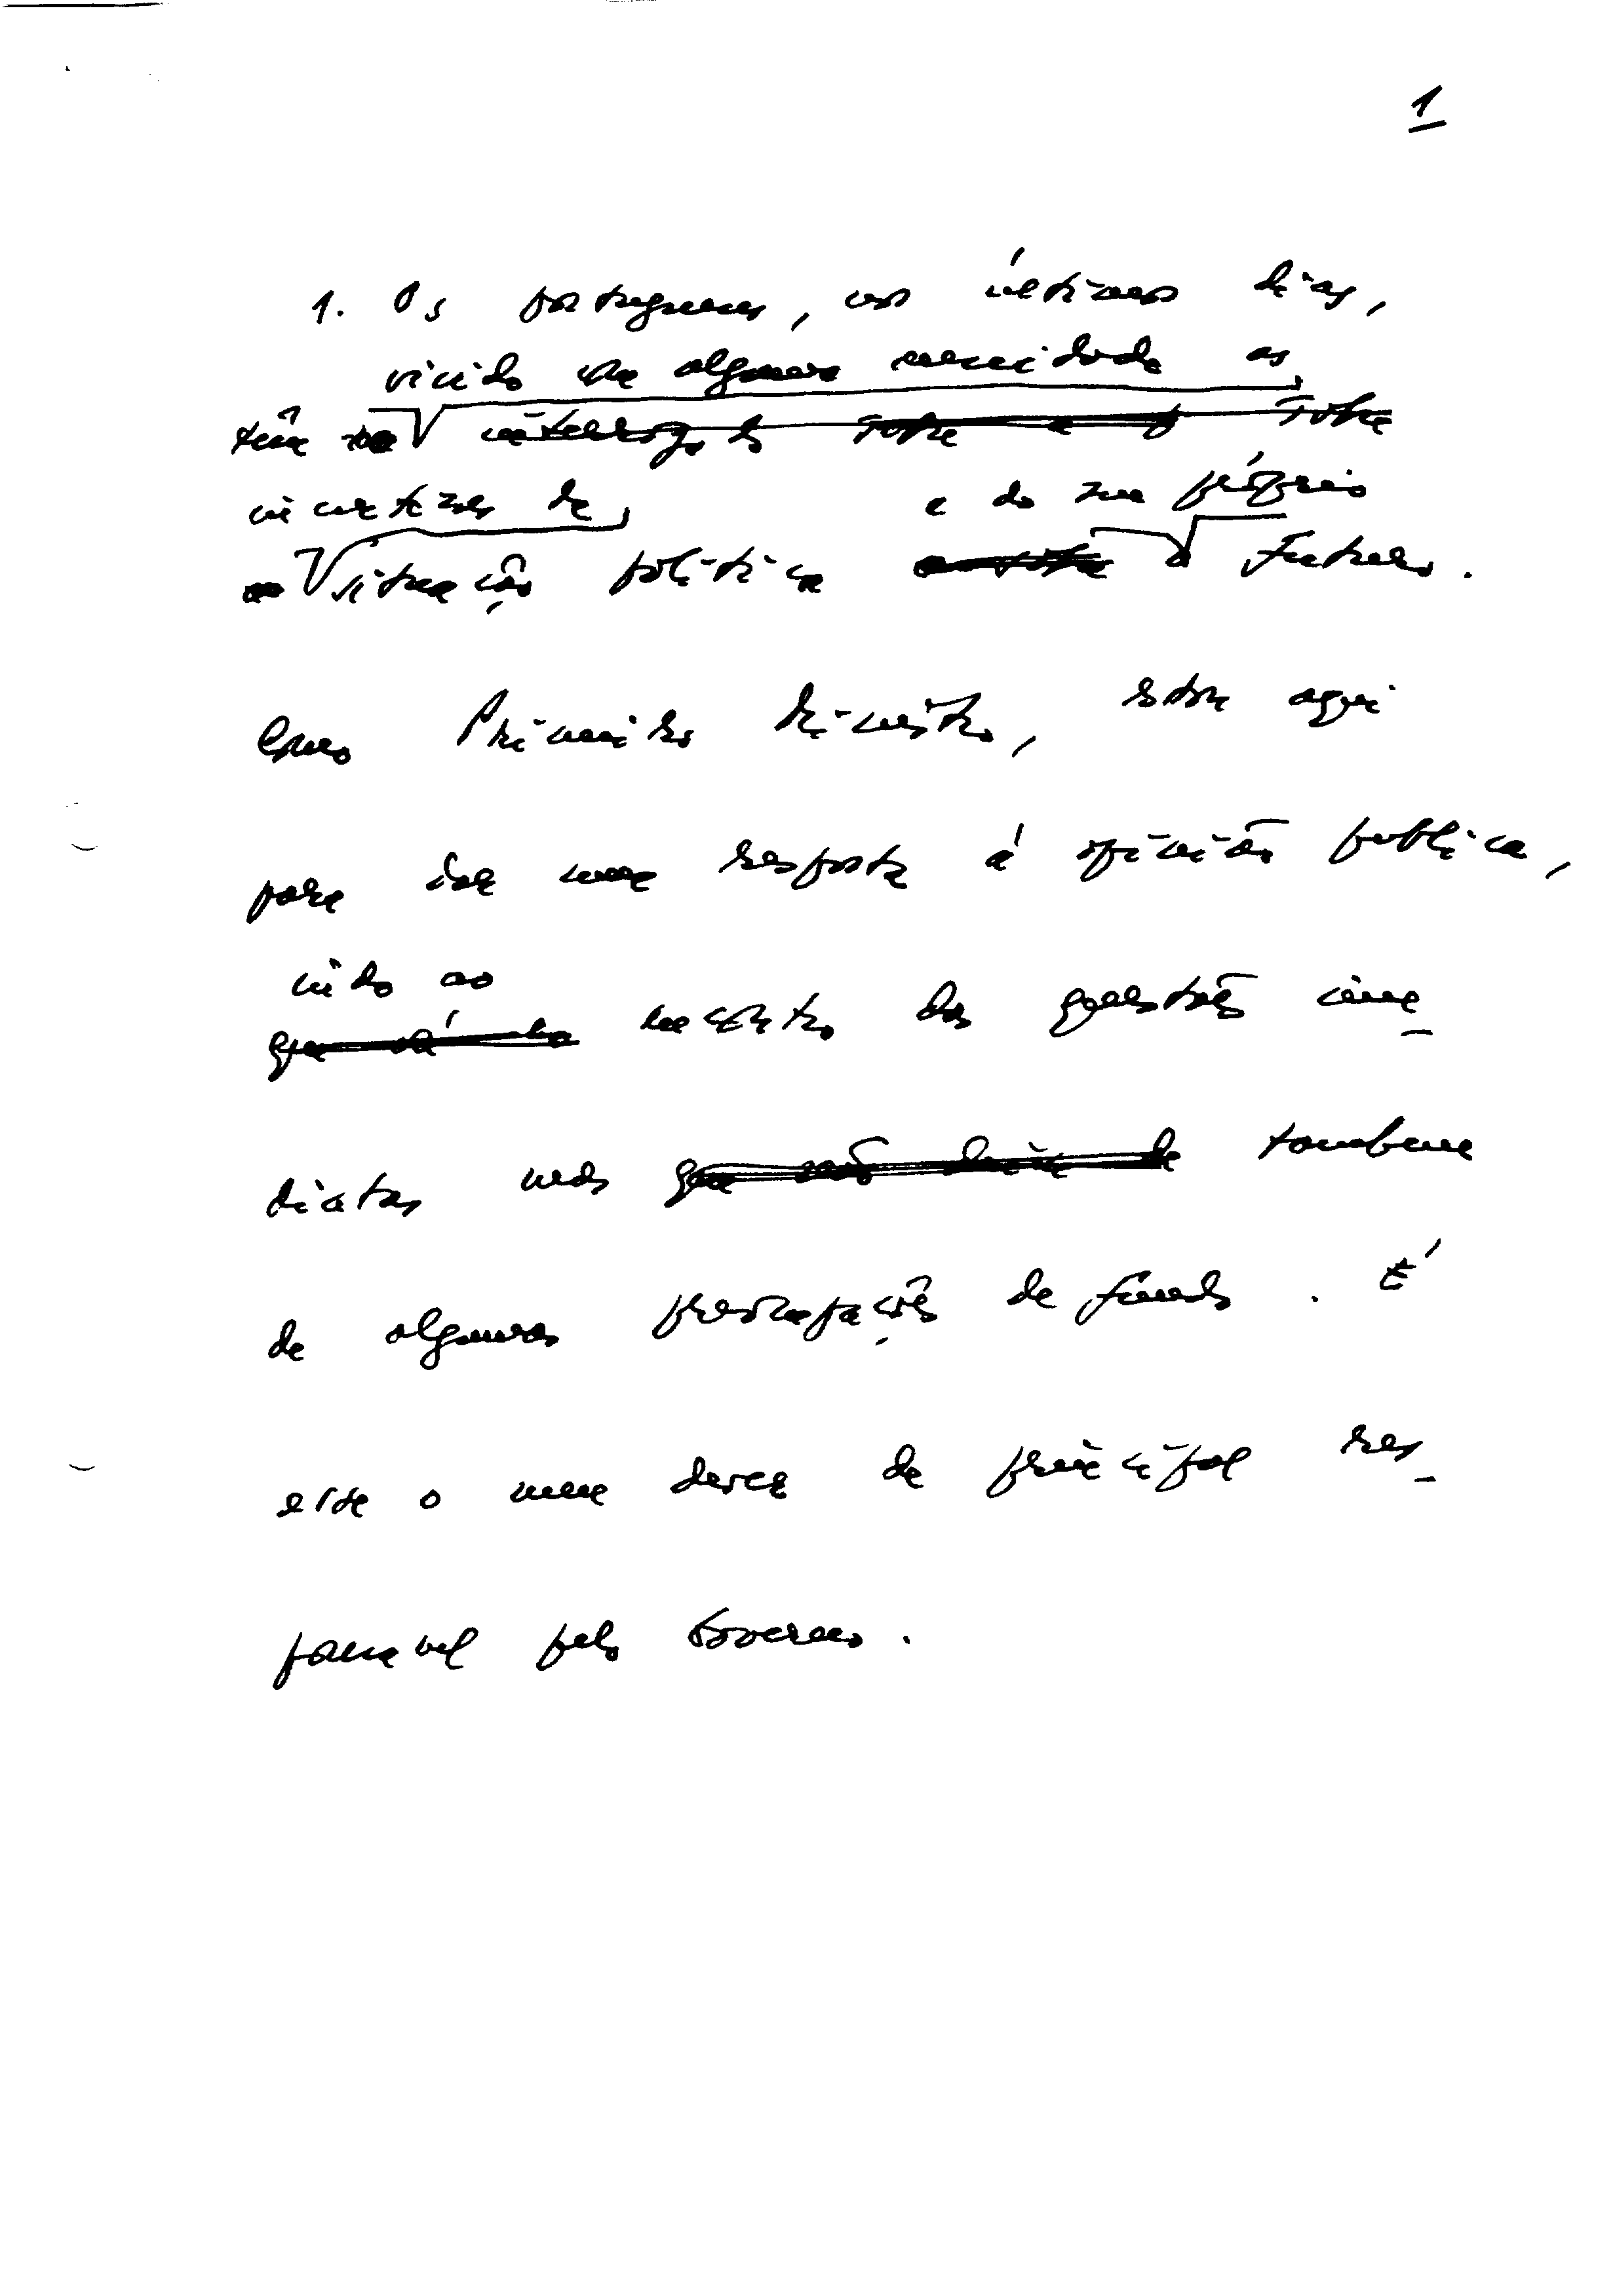 1
1. Os portugueses, nos últimos dias,
vivido com alguma ansiedade as
têm interrogado sobre sobre
incertezas da e do seu próprio
situação política futuro.
Como Primeiro Ministro, estou aqui
para dar uma resposta à opinião publica,
indo ao
que vá ao encontro das questões ime_
diatas mas que não deixe de tambem
de algumas preocupações de fundo. É
esse o meu dever de principal res_
ponsavel pelo Governo.